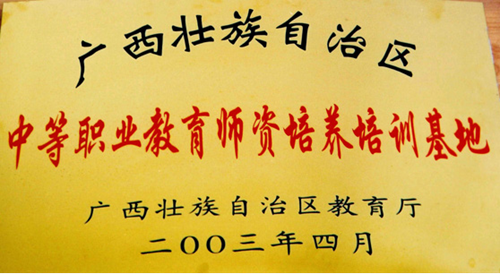 广西壮族自治区
中等职业教育师资培养培训基地
广西壮族自治区教育厅
二〇〇三年四月